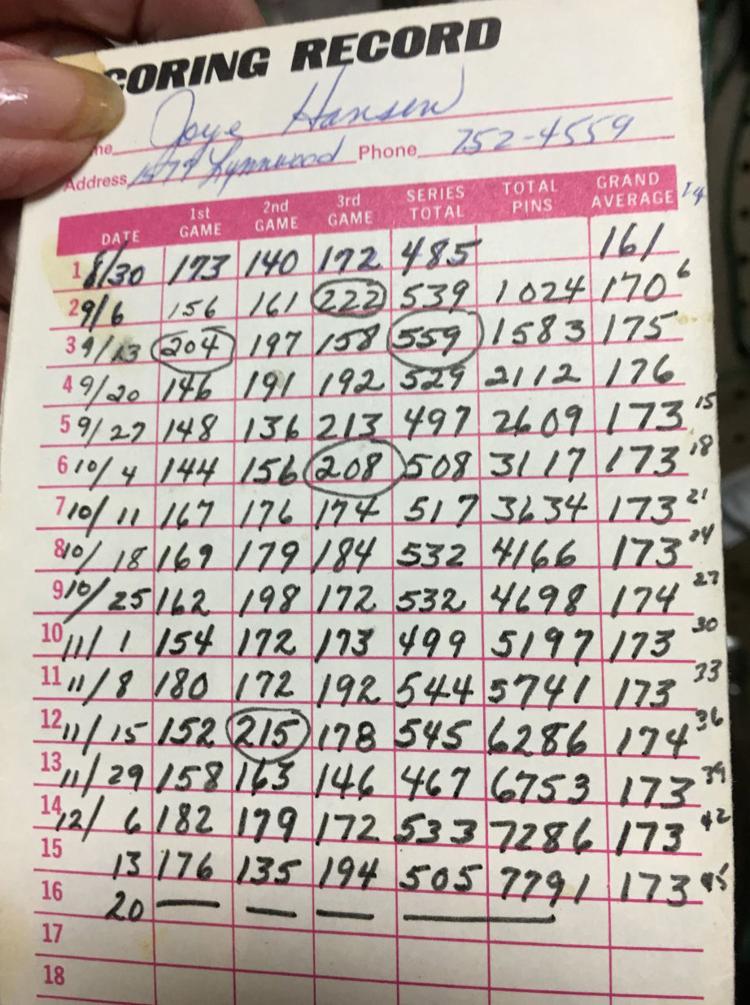 CORING RECORD
me Joye Hansen
Address 1479 Lynnwood Phone 752-4559
DATE 1st GAME 2nd GAME 3rd GAME SERIES TOTAL TOTAL PINS GRAND AVERAGE
1 8/30 173 140 172 485 161
2 9/6 156 161 222 539 1024 170 6
3 9/13 204 197 158 559 1583 175
4 9/20 146 191 192 529 2112 176
5 9/27 148 136 213 497 2609 173 15
6 10/4 144 156 208 508 3117 173 18
7 10/11 167 176 174 517 3634 173 21
8 10/18 169 179 184 532 4166 173 24
9 10/25 162 198 172 532 4698 174 27
10 11/1 154 172 173 499 5197 173 30
11 11/8 180 172 192 544 5741 173 33
12 11/15 152 215 178 545 6286 174 36
13 11/29 158 163 146 467 6753 173 39
14 12/6 182 179 172 533 7286 173 42
15 13 176 135 194 505 7791 173 45
16 20 — — — —
17
18